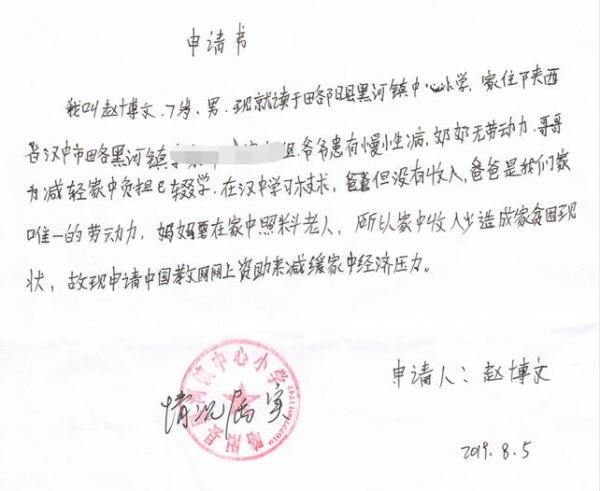 申请书
我叫赵博文.7岁、男.现就读于略阳县黑河镇中心小学,家住陕西
省汉中市略阳黑河镇 组.爷爷患有慢性病,奶奶无劳动力.哥哥
为减轻家中负担已辍学.在汉中学习技术,但没有收入,爸爸是我们家
唯一的劳动力,妈妈要在家中照料老人,所以家中收入少造成家贫困现
状,故现申请中国教网网上资助来减缓家中经济压力。
情况属实
略阳县黑河镇中心小学
申请人:赵博文
2019.8.5